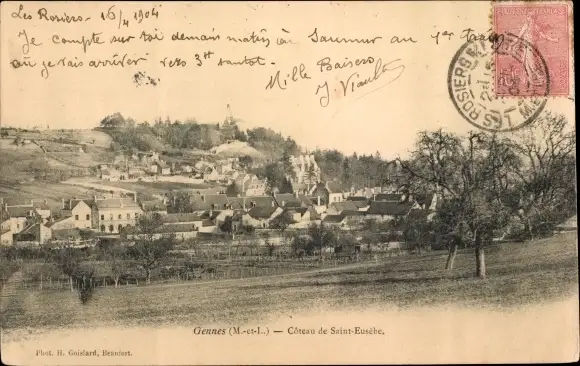 Les Rosiers. 16/4 1904
Je compte sur toi demain matin à Saumur au 1er train
où je vais arriver vers 3ht
Mille Baisers
J. Viault
ROSIERS
Gennes (M.-et-L.) — Côteau de Saint-Eusèbe.
Phot. H. Goislard, Beaufort.